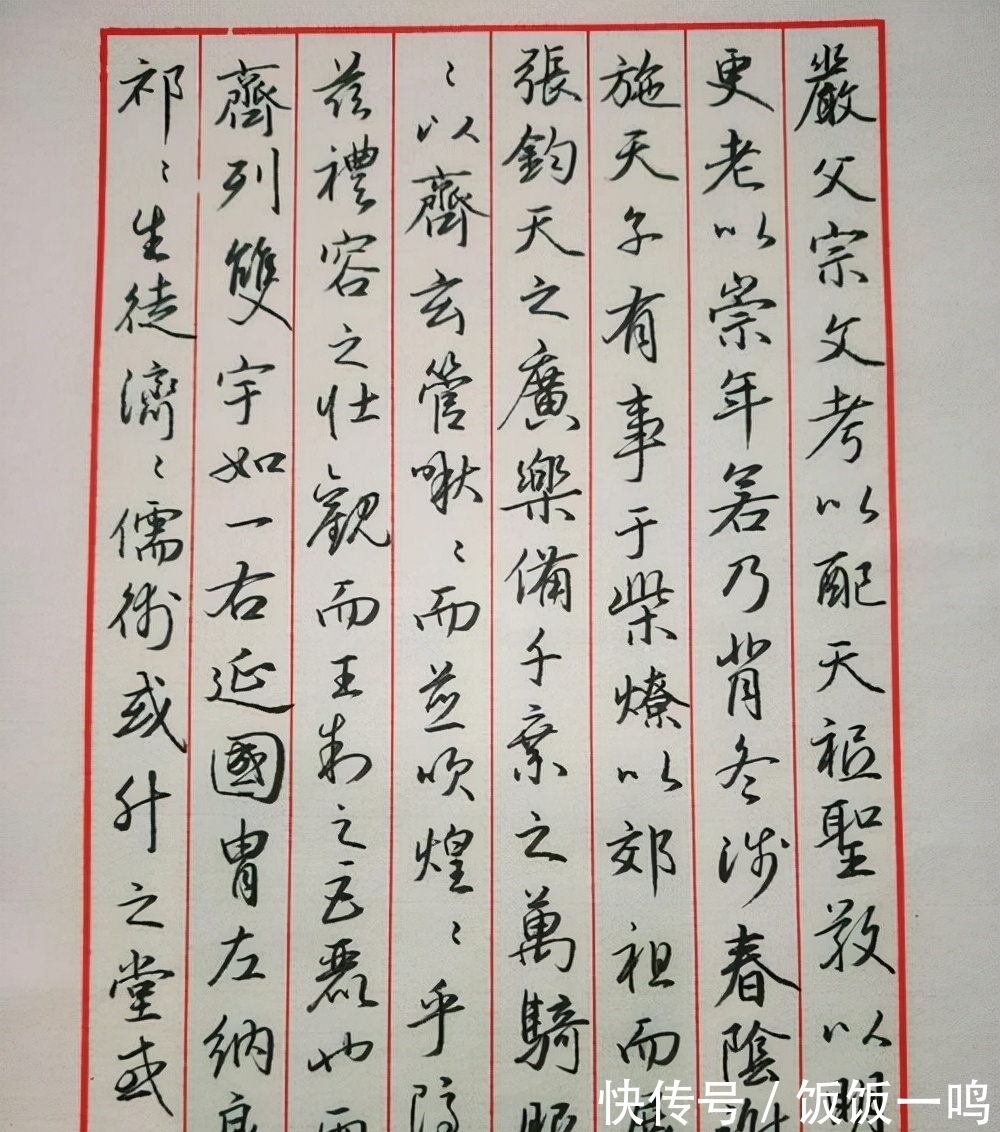 嚴父宗文考以配天祗聖敬以明
更老以崇年若乃背冬涉春陰謝
施天子有事于柴燎以郊祖而
張鈞天之廣樂備千乘之萬騎服
〻以齊玄管啾〻而並吹煌〻乎隱
茲禮容之壯觀而王制之巨麗也兩
齊列雙宇如一右延國胄左納良
祁〻生徒濟〻儒術或升之堂或
快传号 / 饭饭一鸣